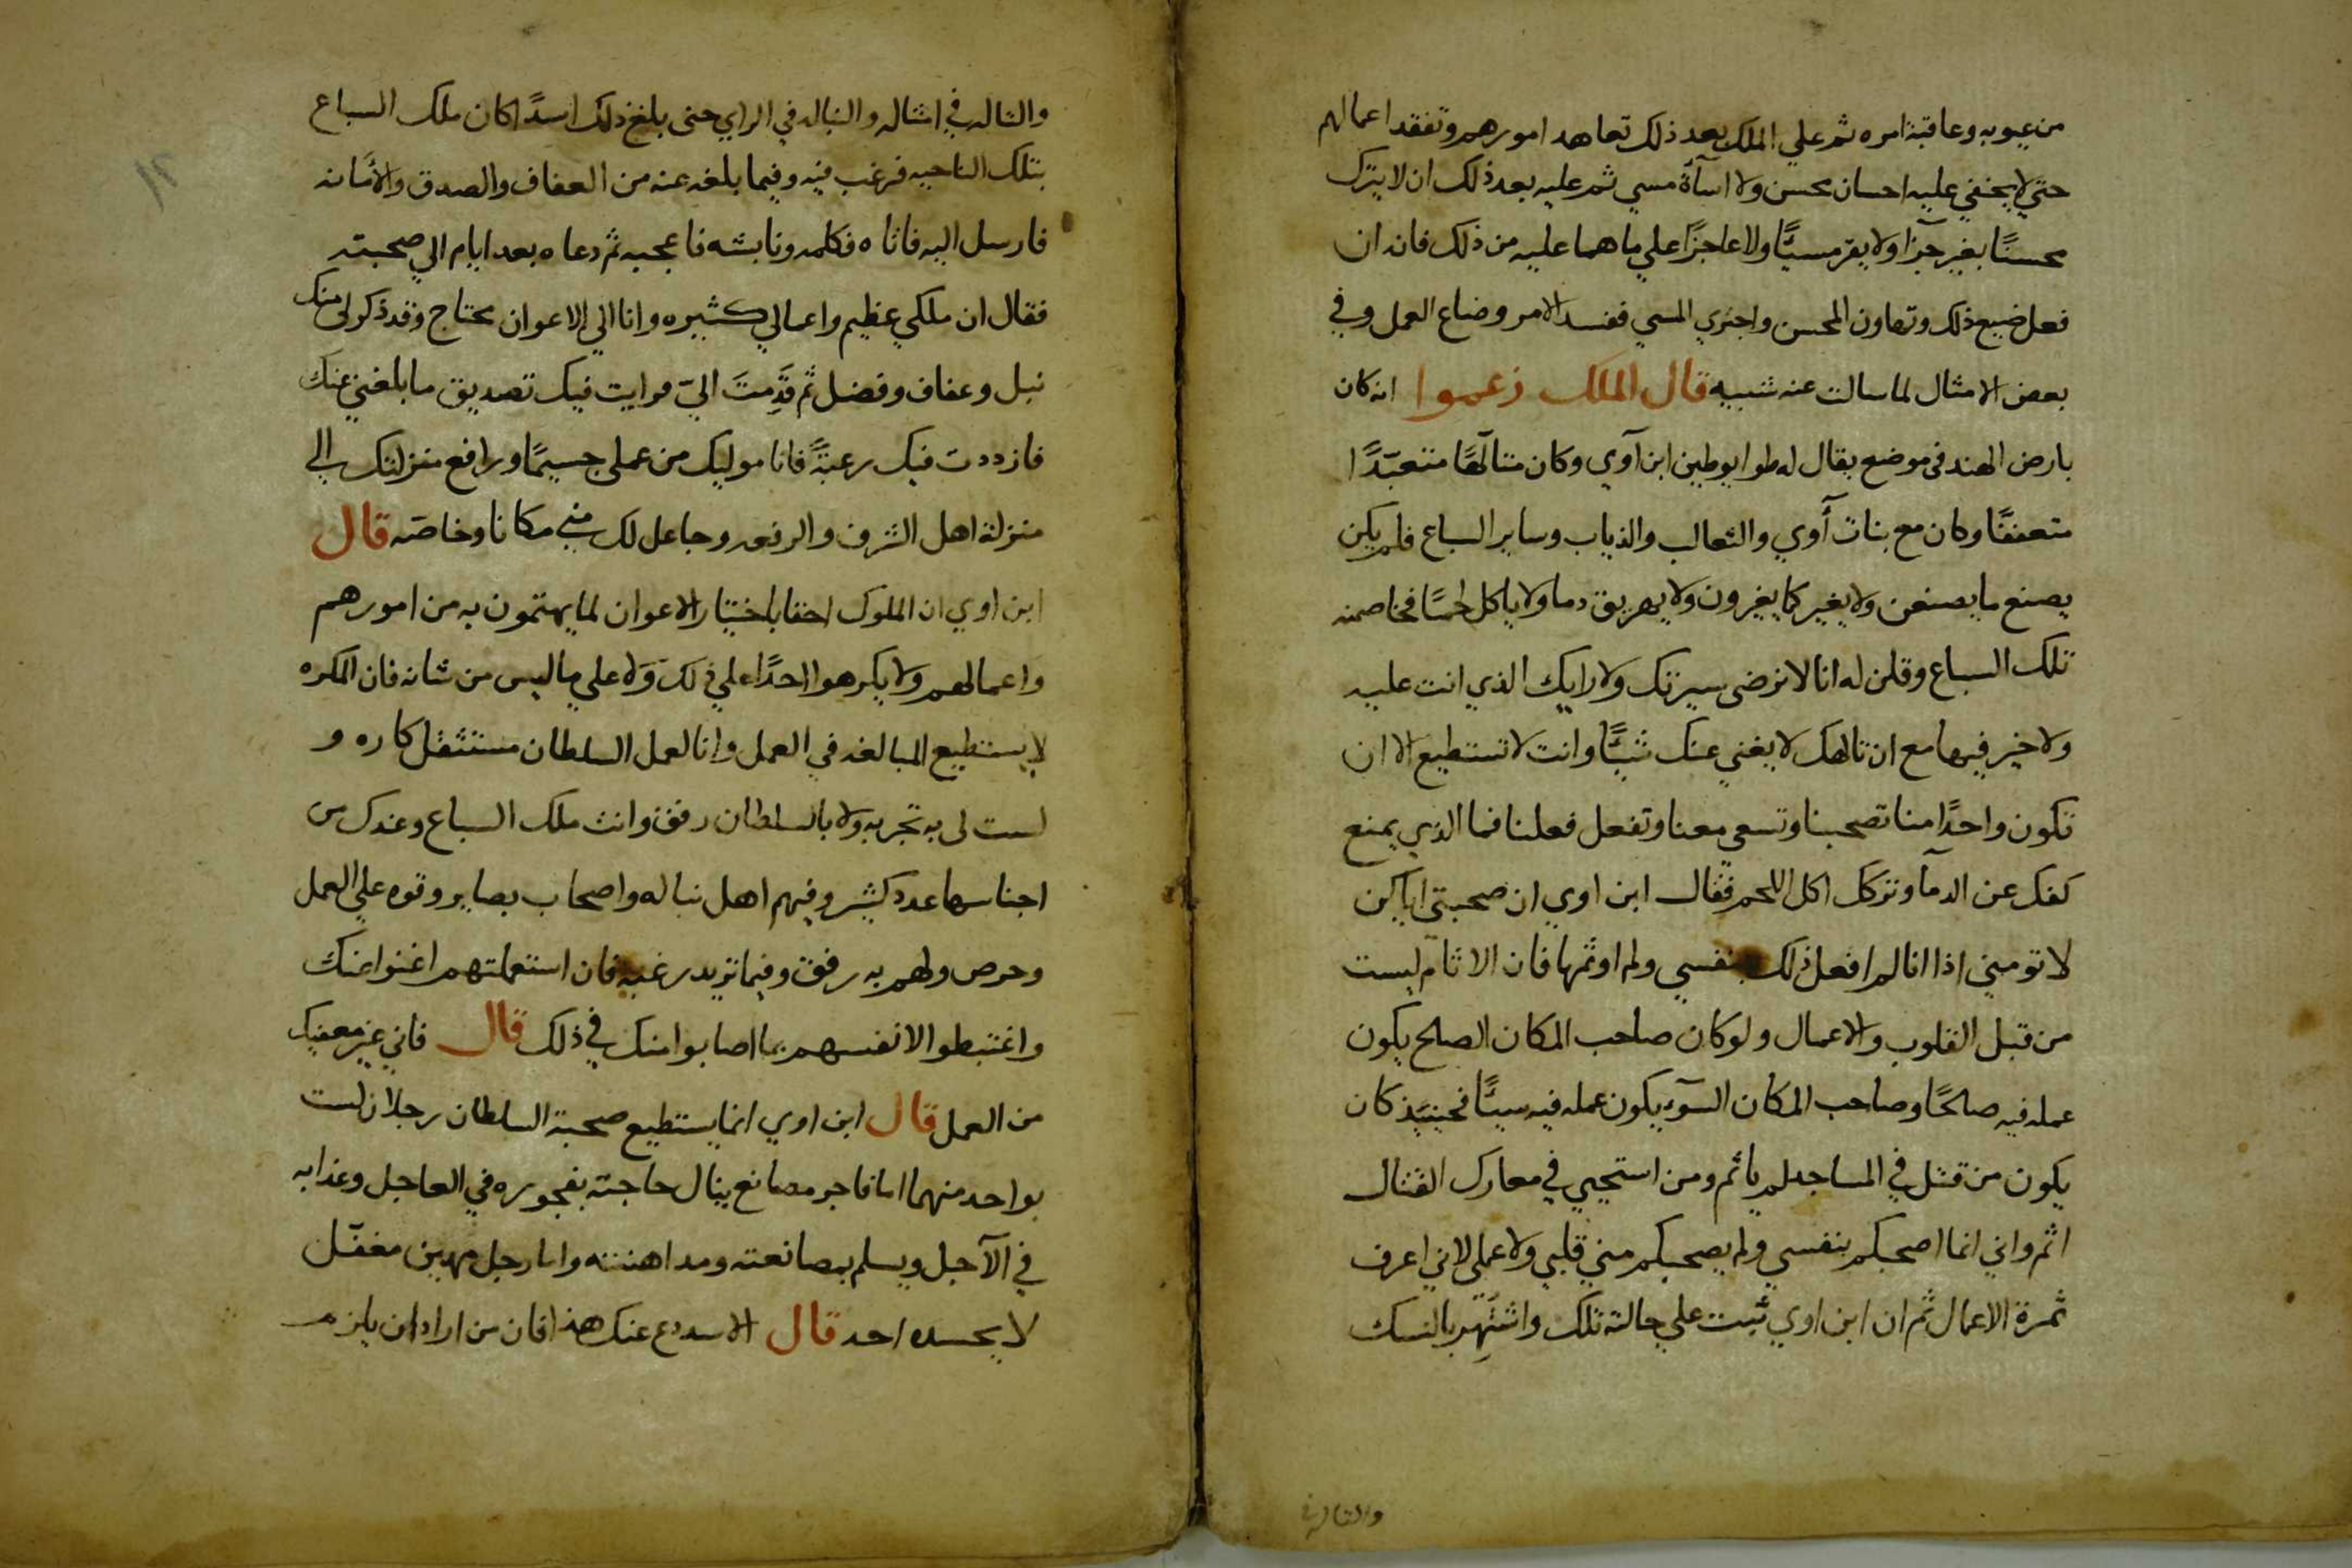 من عيوبه وعاقبة امره ثم علي الملك بعد ذلك تعاهد امورهم وتفقد اعمالهم
حتي لا يخفي عليه احسان محسن ولا اسآة مسي ثم عليه بعد ذلك ان لا يترك
محسنًا بغير جزا ولا يقر مسيًّا ولا عاجزًا علي ما هما عليه من ذلك فانه ان
فعل ضيع ذلك وتهاون المحسن واجتري المسي ففسد الامر وضاع العمل وفي
بعض الامثال لما سالت عنه شبيه قال الملك زعموا انه كان
بارض الهند في موضع يقال له طوابوطين ابن آوي وكان متالّهًا متعبّدًا
متعففًا وكان مع بنات أوي والثعالب والذياب وساير السباع فلم يكن
يصنع ما يصنعن ولا يغير كما يغيرون ولا يهريق دما ولا ياكل لحمًا فخاصمنه
تلك السباع وقلن له انا لا نرضى سيرتك ولا رايك الذي انت عليه
ولا خير فيها مع ان تالهك لا يغني عنك شيًّا وانت لا تستطيع الا ان
تكون واحدًا منا تصحبنا وتسعى معنا وتفعل فعلنا فما الذي يمنع
كفك عن الدمآ وتركك اكل اللحم فقال ابن اوي ان صحبتي اياكن
لا توميني اذا انا لم افعل ذلك بنفسي ولم اوثمها فان الاثام ليست
من قبل القلوب والاعمال ولو كان صاحب المكان الصلح يكون
عمله فيه صالحًا وصاحب المكان السّوء يكون عمله فيه سييًّا فحينيذ كان
يكون من قتل في المساجد لم ياثم ومن استحيي في معارك القتال
اثم واني انما اصحبكم بنفسي ولم يصحبكم مني قلبي ولا عملي لاني اعرف
ثمرة الاعمال ثم ان ابن اوي ثبت علي حالته تلك واشتهر بالنسك
والتاله في
والتاله في امثاله والنباله في الراي حتى بلغ ذلك اسدًا كان ملك السباع
بتلك الناحيه فرغب فيه وفيما بلغه عنه من العفاف والصدق والامانه
فارسل اليه فاتاه فكلمه ونابشه فاعجبه ثم دعاه بعد ايام الي صحبته
فقال ان ملكي عظيم واعمالي كثيره وانا الي الاعوان محتاج وقد ذكر لي منك
نبل وعفاف وفضل ثم قَدِمتَ اليّ فرايت فيك تصديق ما بلغني عنك
فازددت فيك رغبةً فانا موليك من عملي جسيمًا ورافع منزلتك الي
منزلة اهل الشرف والرفعه وجاعل لك مني مكانا وخاصّه قال
ابن اوي ان الملوك احقا باختيار الاعوان لما يهتمون به من امورهم
واعمالهم ولا يكرهوا احدًا علي ذلك وَلا علي ما ليس من شانه فان المكره
لا يستطيع المبالغه في العمل وانا لعمل السلطان مستثقل كاره و
لست لي به تجربه ولا بالسلطان رفق وانت ملك السباع وعندك من
اجناسها عدد كثير وفيهم اهل نباله واصحاب بصاير وقوه علي العمل
وحرص ولهم به رفق وفيما تريد رغبه فان استعملتهم اغنوا عنك
واغتبطوا الانفسهم بما اصابوا منك في ذلك قال فاني غير معفيك
من العمل قال ابن اوي انما يستطيع صحبة السلطان رجلان لست
بواحد منهما اما فاجر مصانع ينال حاجته بفجوره في العاجل وعذابه
في الآجل ويسلم بمصانعته ومداهنته واما رجل مهين مغفّل
لا يحسده احد قال الاسد دع عنك هذا فان من اراد ان يلزم